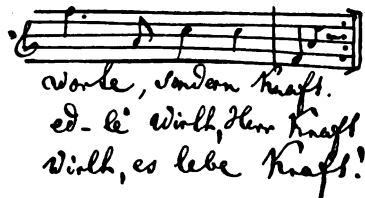 Worte, sondern Kraft.
ed-le Wirth, Herr Kraft
Wirth, es lebe Kraft!